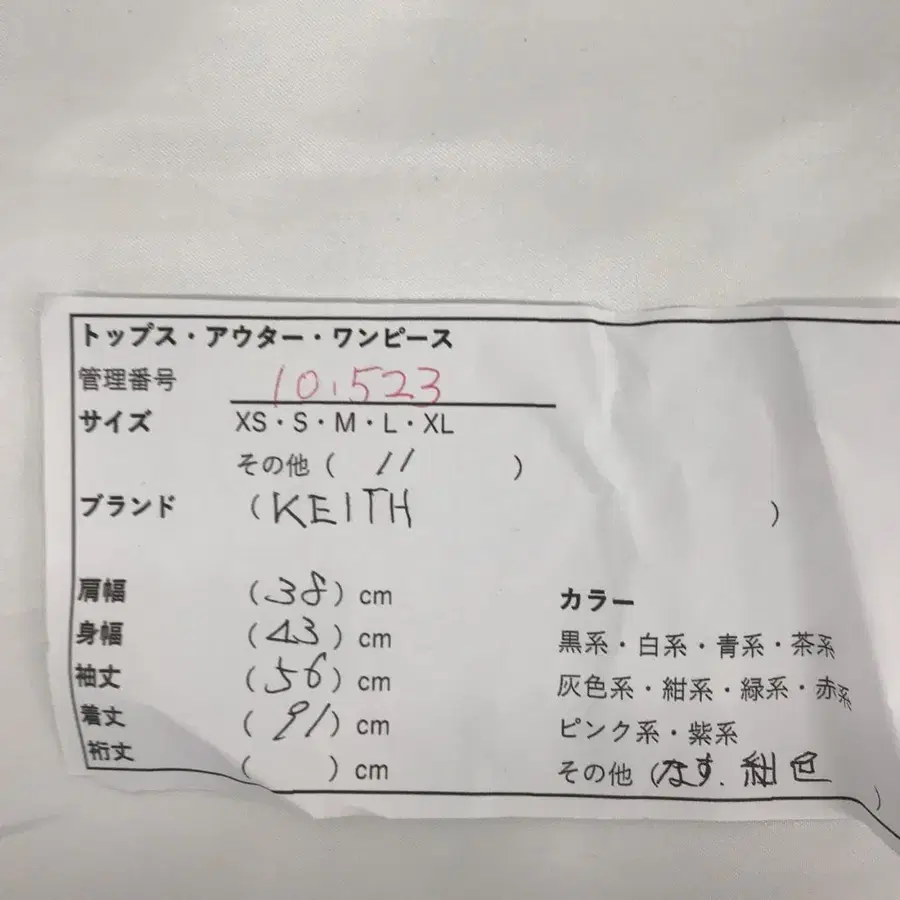 トップス・アウター・ワンピース
管理番号 10.523
サイズ XS・S・M・L・XL
その他 ( 11 )
ブランド (KEITH )
肩幅 (38) cm
身幅 (43) cm
袖丈 (56) cm
着丈 (91) cm
裄丈 ( ) cm
カラー
黒系・白系・青系・茶系
灰色系・紺系・緑系・赤系
ピンク系・紫系
その他 (なす.紺色 )